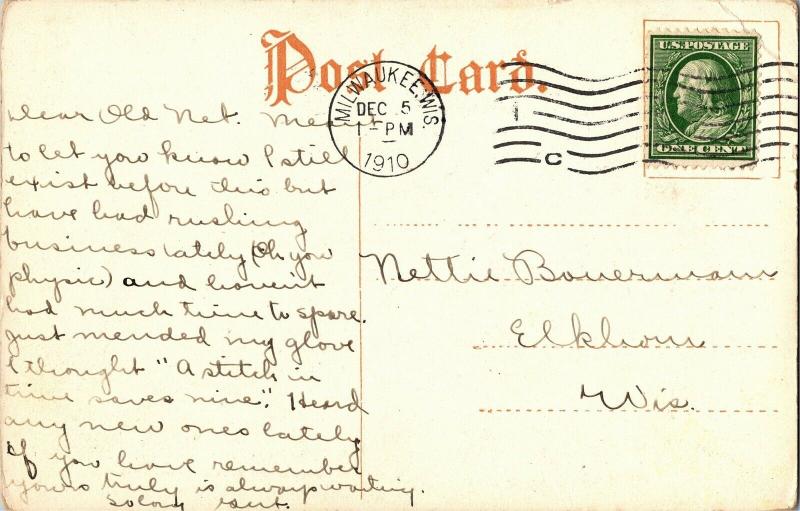 Post Card.
MILWAUKEE, WIS.
DEC 5
1-PM
1910
C
U.S. POSTAGE
ONE CENT
Dear Old Net. Meant
to let you know I still
exist before this but
have had rushing
business lately (Oh you
physic) and haven't
had much time to spare.
Just mended my glove
I thought "A stitch in
time saves nine". Heard
any new ones lately
If you have remember
yours truly is always waiting.
So long
Nettie Bouermann
Elkhorn
Wis.